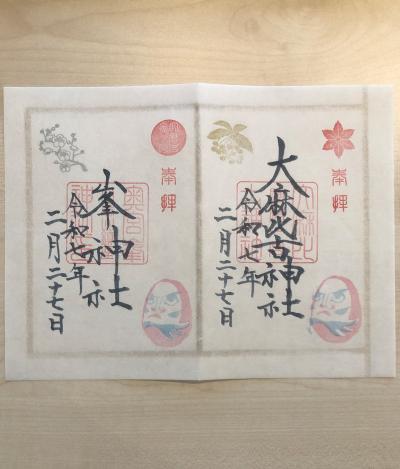 奉拝
大麻比古神社
令和七年
二月二十七日
奉拝
峯神社
令和七年
二月二十七日